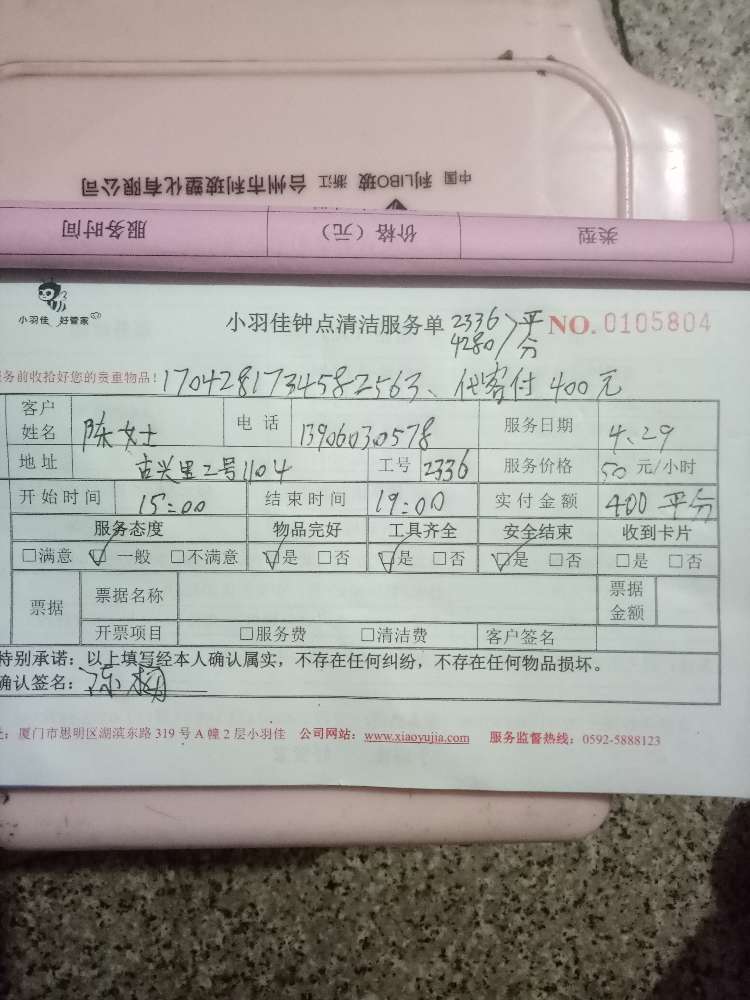 中国 浙江 利LIBO玻 台州市利玻塑化有限公司
类型 价格（元） 服务时间
小羽佳 好管家
小羽佳钟点清洁服务单 2336 4280 平分 NO. 0105804
务前收拾好您的贵重物品！1704281734582563、代客付400元
客户姓名 陈女士 电话 13906030578 服务日期 4.29
地址 古兴里二号1104 工号 2336 服务价格 50 元/小时
开始时间 15:00 结束时间 19:00 实付金额 400 平分
服务态度 物品完好 工具齐全 安全结束 收到卡片
□满意 ☑一般 □不满意 ☑是 □否 ☑是 □否 ☑是 □否 □是 □否
票据 票据名称 票据金额
开票项目 □服务费 □清洁费 客户签名
特别承诺：以上填写经本人确认属实，不存在任何纠纷，不存在任何物品损坏。
确认签名：
厦门市思明区湖滨东路 319 号 A 幢 2 层小羽佳 公司网站：www.xiaoyujia.com 服务监督热线：0592-5888123